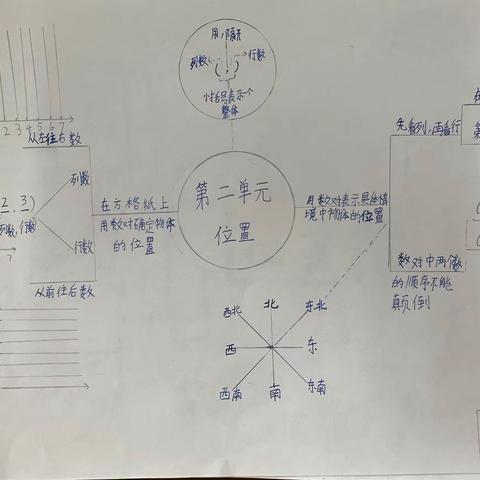 用,隔开
列数
行数
小括号表示一个
整体
2 3 4 5 6 7
从左往右数
列数
2, 3)
列数,行数
行数
7
从前往后数
在方格纸上
用数对确定物体
的位置
第二单元
位置
用数对表示具体情
境中物体的位置
先看列,再看行
数对中两个数
的顺序不能
颠倒
西北
北
东北
西
东
西南
南
东南